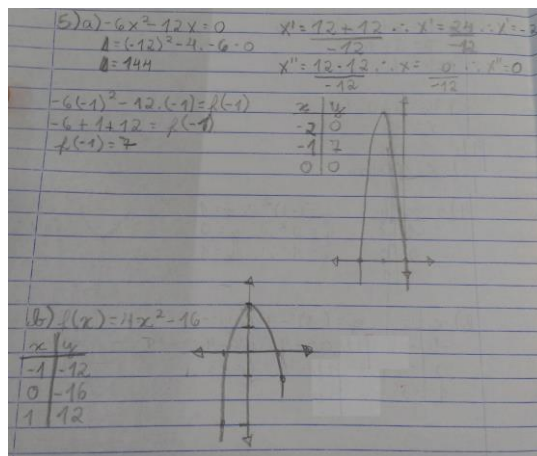 5) a) -6x²-12x=0
Δ=(-12)²-4.-6.0
Δ=144
x'=12+12/-12 ∴ x'=24/-12 ∴ x'=-2
x''=12-12/-12 ∴ x=0/-12 ∴ x''=0
-6(-1)²-12.(-1)=f(-1)
-6+1+12=f(-1)
f(-1)=7
x | y
-2 | 0
-1 | 7
0 | 0
b) f(x)=4x²-16
x | y
-1 | -12
0 | -16
1 | 12